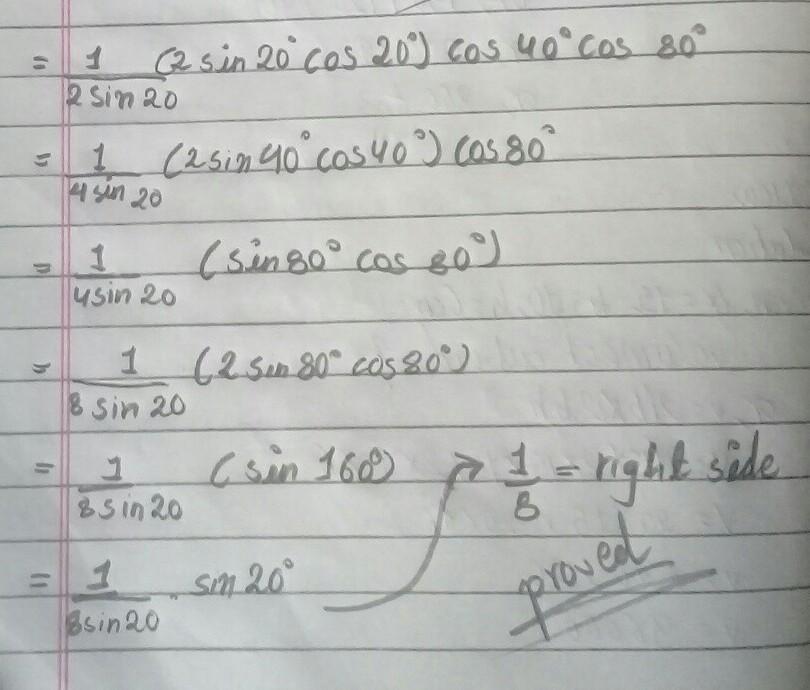 = 1/2sin20 (2sin20° cos 20°) cos 40° cos 80°
= 1/4sin20 (2sin40° cos40°) cos80°
= 1/4sin20 (sin80° cos 80°)
= 1/8sin20 (2sin80° cos80°)
= 1/8sin20 (sin 160°) → 1/8 = right side
= 1/8sin20 . sin20° proved